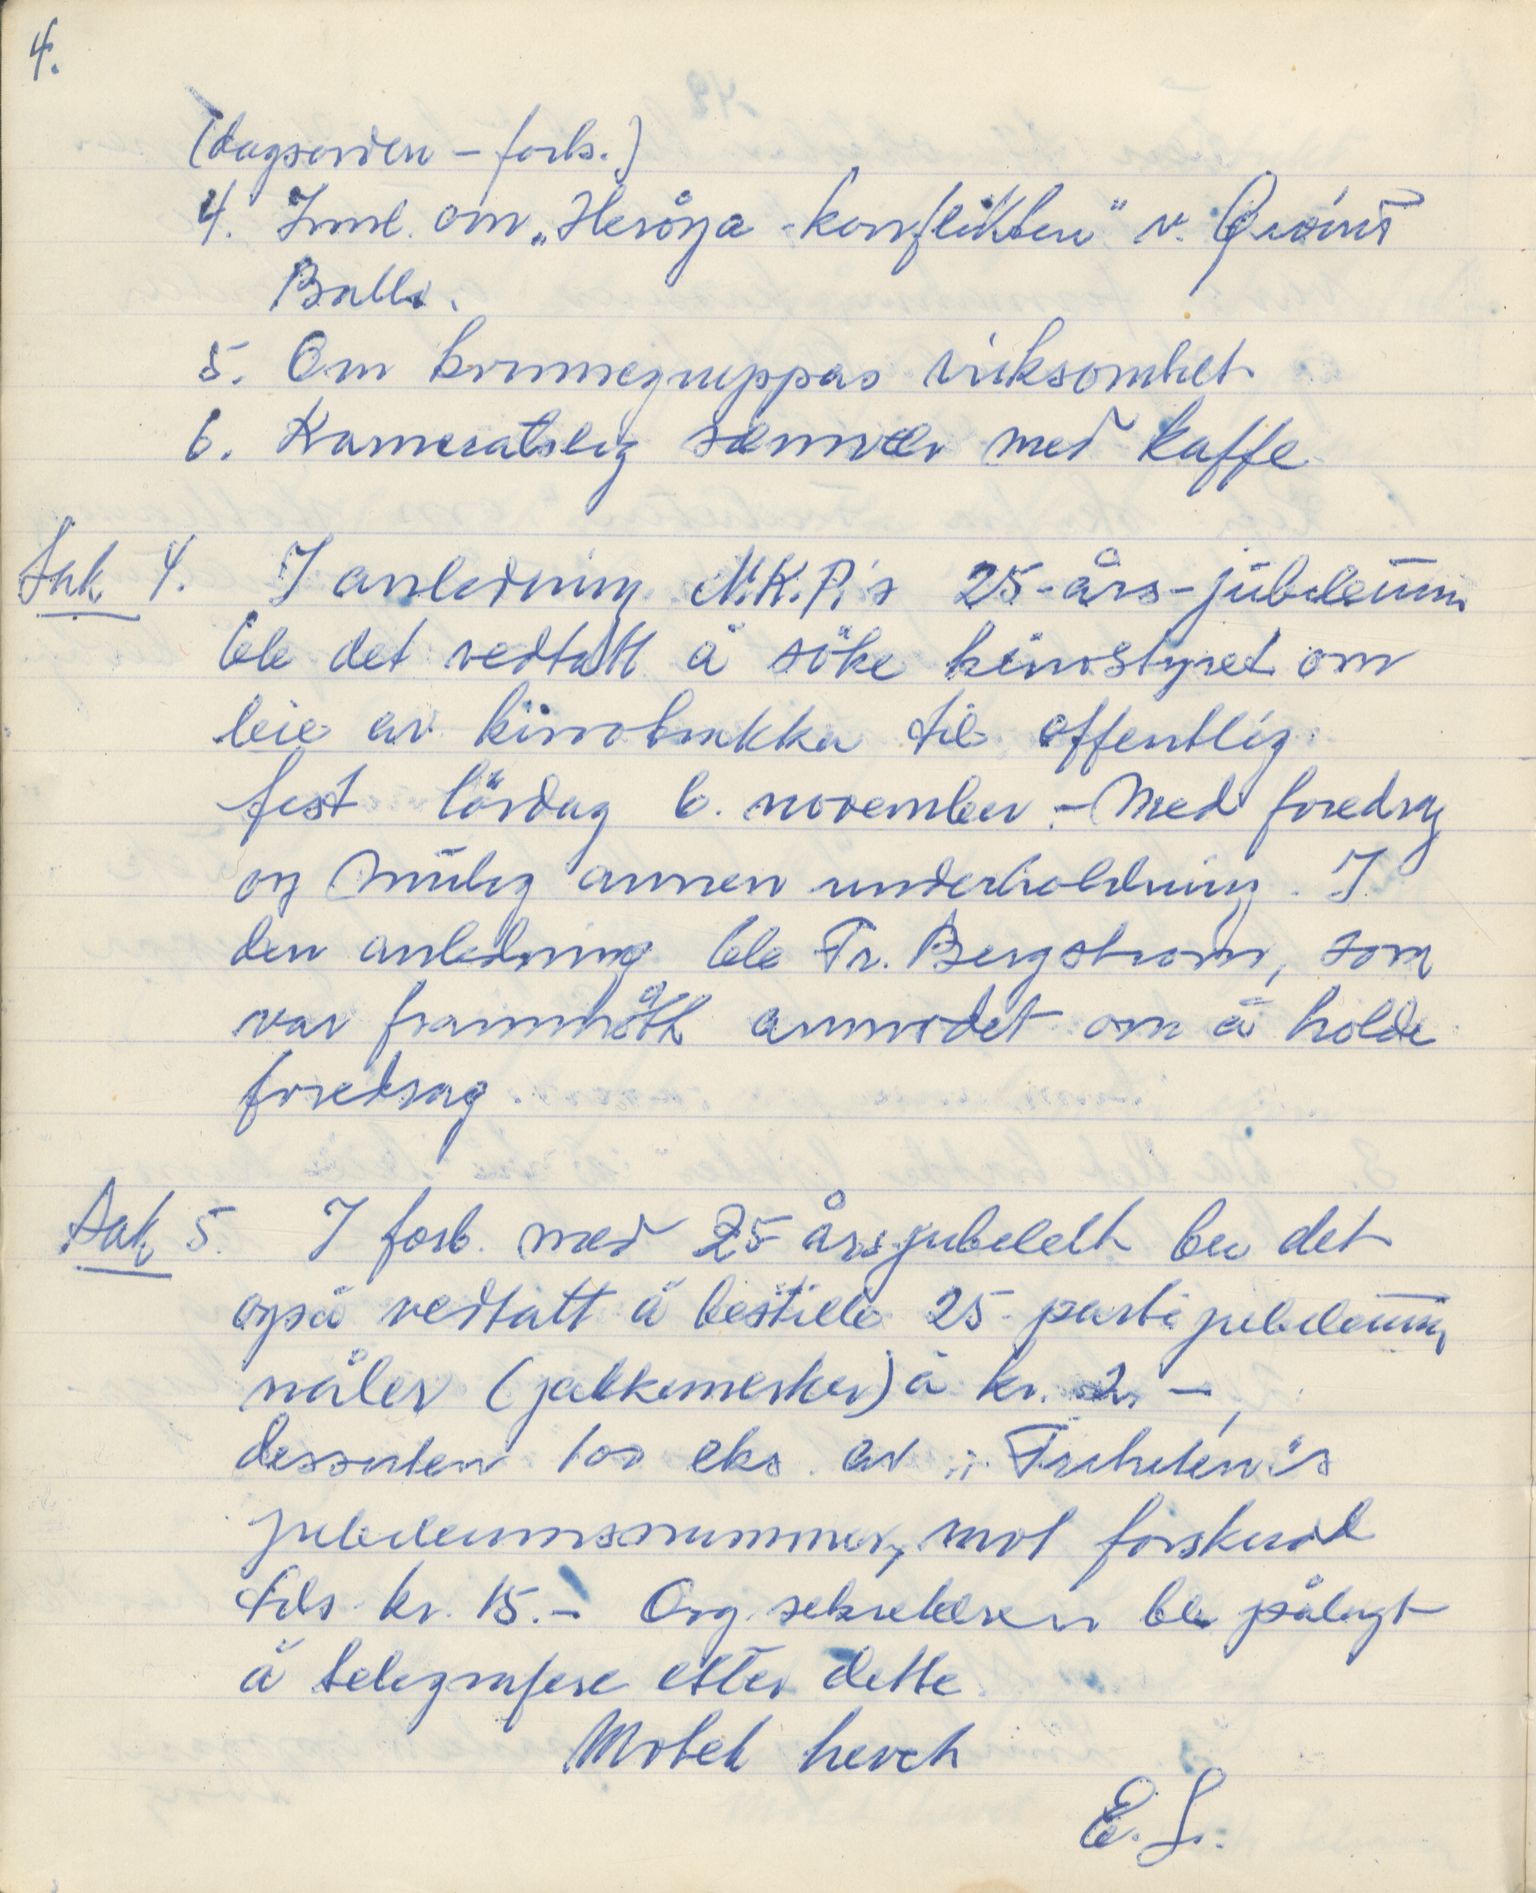 4.
(dagsorden – forts.)
4. Innl. om „Herøya-konflikten" v.
Balle.
5. Om kvinnegruppas virksomhet
6. Kameratslig samvær med kaffe
Sak 4. I anledning N.K.P.'s 25-års-jubileum
ble det vedtatt å söke kinostyret om
leie av kinobrakka til offentlig
fest lördag 6. november. – Med foredrag
og mulig annen underholdning. I
den anledning ble Fr. Bergstrøm, som
var frammøtt anmodet om å holde
foredrag.
Sak 5. I forb. med 25 årsjubileet ble det
også vedtatt å bestille 25 partijubileums
nåler (jakkemerker) à kr. 2. –,
dessuten 100 eks. av „Friheten"s
jubileumsnummer, mot forskudd
tils. kr. 15. – Org. sekretæren ble pålagt
å telegrafere etter dette
Møtet hevet
E. L.